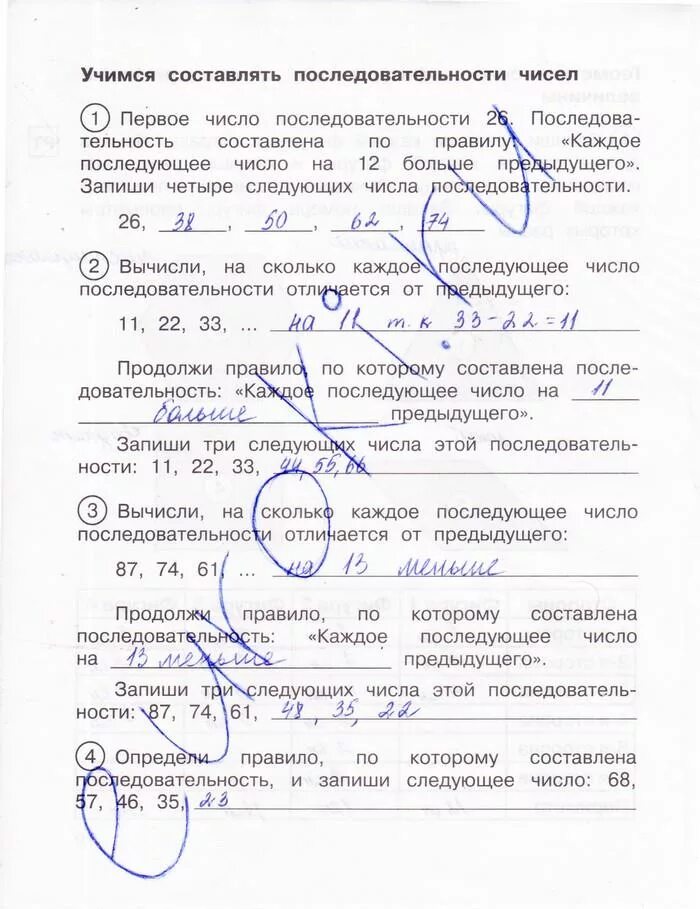 Учимся составлять последовательности чисел
1 Первое число последовательности 26. Последова-
тельность составлена по правилу: «Каждое
последующее число на 12 больше предыдущего».
Запиши четыре следующих числа последовательности.
26, 38, 50, 62, 74
2 Вычисли, на сколько каждое последующее число
последовательности отличается от предыдущего:
11, 22, 33, ... на 11 т.к 33-22=11
Продолжи правило, по которому составлена после-
довательность: «Каждое последующее число на 11
больше предыдущего».
Запиши три следующих числа этой последователь-
ности: 11, 22, 33, 44, 55, 66
3 Вычисли, на сколько каждое последующее число
последовательности отличается от предыдущего:
87, 74, 61, ... на 13 меньше
Продолжи правило, по которому составлена
последовательность: «Каждое последующее число
на 13 меньше предыдущего».
Запиши три следующих числа этой последователь-
ности: 87, 74, 61, 48, 35, 22
4 Определи правило, по которому составлена
последовательность, и запиши следующее число: 68,
57, 46, 35, 23